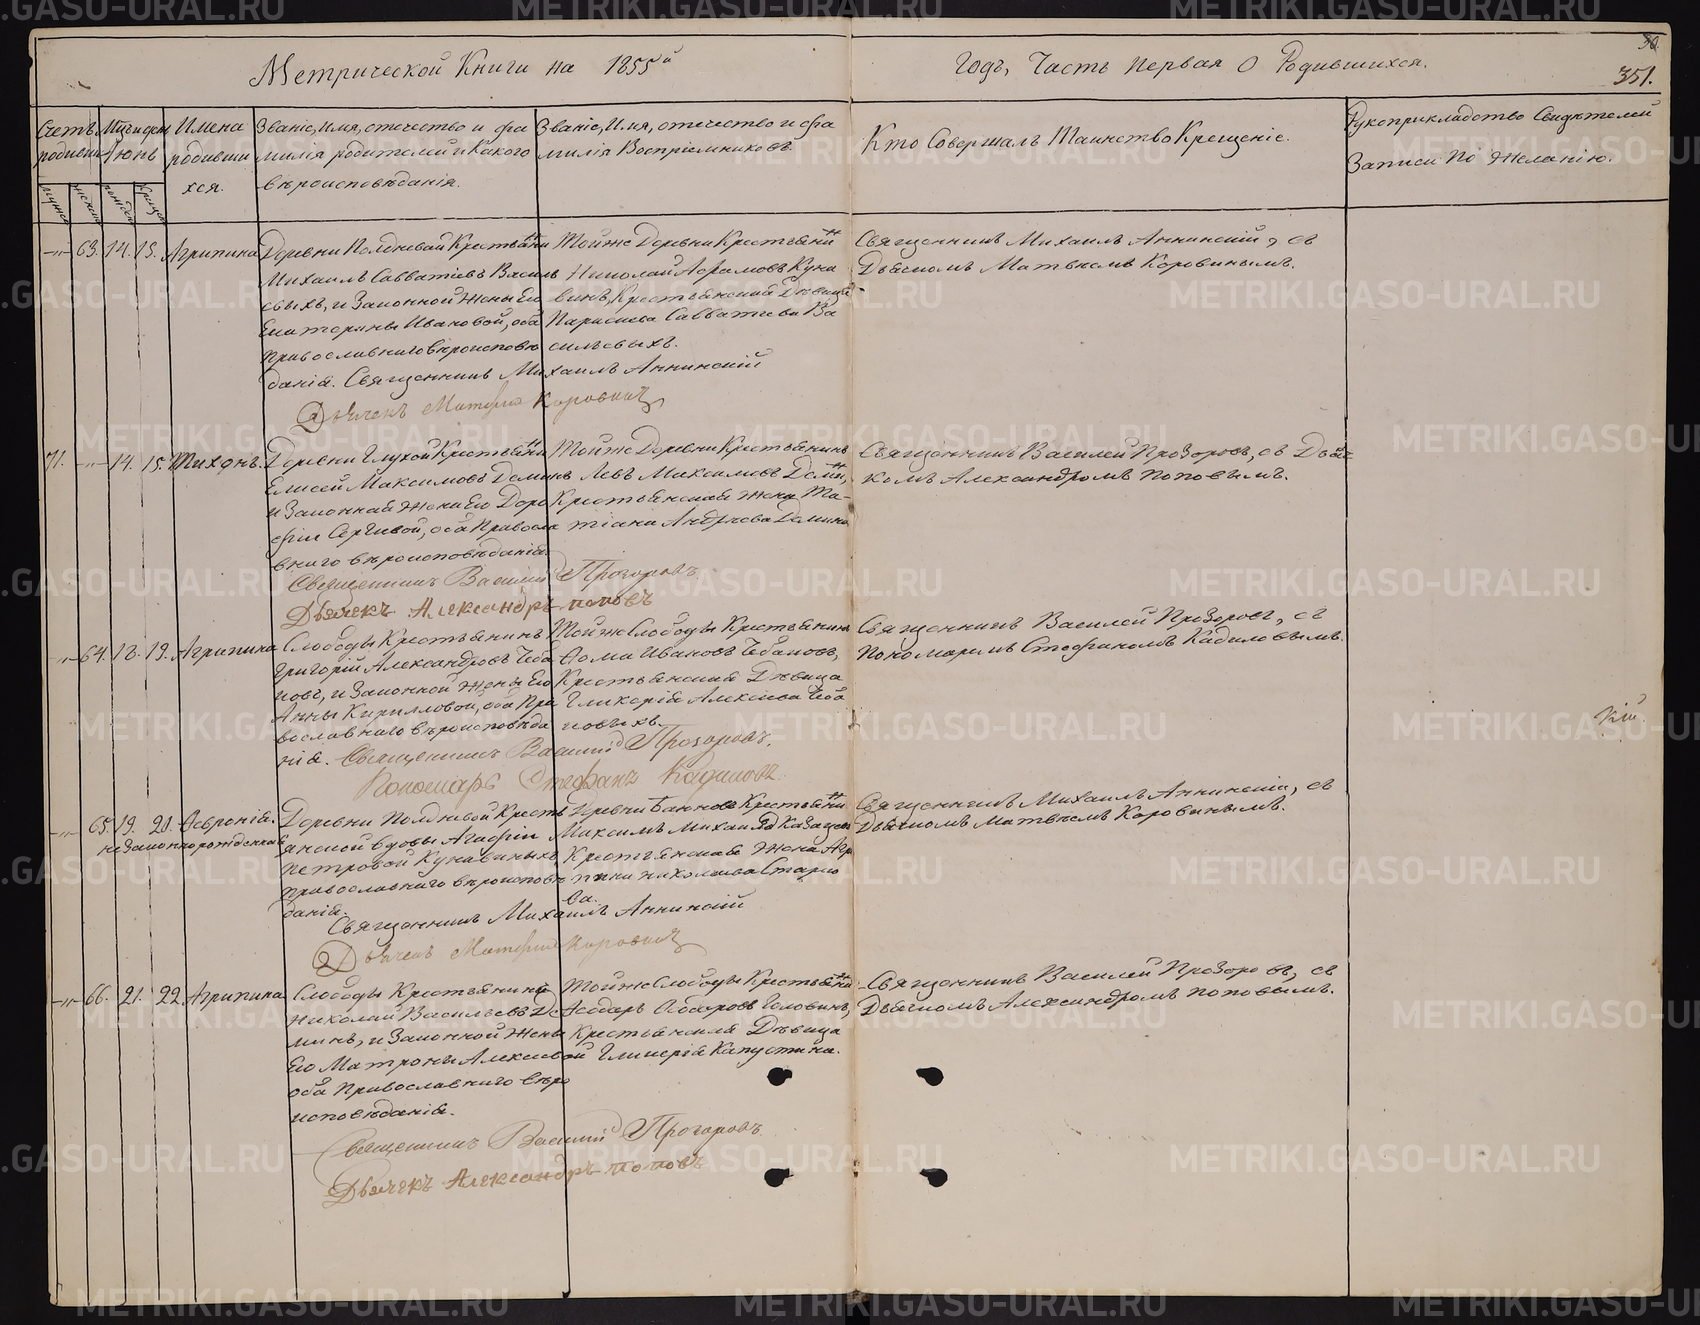 Метрической Книги на 1855й
Годъ, Часть первая О Родившихся.
351.
Счетъ родивших
Мѣсяцъ и день Іюнь
Имена родившихся.
Званіе, имя, отечество и фамилія родителей и Какого вѣроисповѣданія.
Званіе, Имя, отечество и фамилія Воспріемниковъ
Кто Совершалъ Таинство Крещеніе.
Рукоприкладство Свидѣтелей Записи По желанію.
63. 14. 15. Агрипина
Деревни Полдневой Крестьянинъ
Михаилъ Савватіевъ Василь
евыхъ, и Законной жены Его
Екатерины Ивановой, оба
православнаго вѣроисповѣ
данія. Священникъ Михаилъ Аннинскій
Дьячекъ Матфей Коровинъ
Той же Деревни Крестьянинъ
Николай Абрамовъ Куна
винъ, Крестьянская Дѣвица
Параскева Савватіева Ва
сильевыхъ.
Священникъ Михаилъ Аннинскій, съ
Дьячкомъ Матвѣемъ Коровинымъ.
71. 14. 15. Тихонъ.
Деревни Глухой Крестьянинъ
Елисей Максимовъ Деминъ
и Законная жена Его Доро
фіи Сергѣевой, оба Правосла
внаго вѣроисповѣданія.
Священникъ Василій Прозоровъ
Дьячекъ Александръ Поповъ
Той же Деревни Крестьянинъ
Левъ Максимовъ Деминъ,
Крестьянская жена Та-
тіана Андреева Демина
Священникъ Василей Прозоровъ, съ Дьяч
комъ Александромъ Поповымъ.
64. 18. 19. Агрипина
Слободы Крестьянинъ
Григорій Александровъ Чеба
ковъ, и Законной жены Его
Анны Кирилловой, оба Пра
вославнаго вѣроисповѣда
нія. Священникъ Василій Прозоровъ,
Пономарь Стефанъ Кадиловъ
Той же Слободы Крестьянинъ
Ѳома Ивановъ Чебаковъ,
Крестьянская Дѣвица
Гликерія Алексѣева Чеба
ковыхъ.
Священникъ Василей Прозоровъ, съ
Пономаремъ Стефаномъ Кадиловымъ.
65. 19. 20. Февронія.
незаконнорожденная
Деревни Полдневой Кресть
янской вдовы Агафіи
Петровой Кунавиныхъ
православнаго вѣроисповѣ
данія.
Священникъ Михаилъ Аннинскій
Дьячекъ Матфей Коровинъ
Крестьянинъ
Максимъ Михайловъ
Крестьянская Жена Агри
пина Николаева
Священникъ Михаилъ Аннинскій, съ
Дьячкомъ Матвѣемъ Коровинымъ.
66. 21. 22. Агрипина
Слободы Крестьянинъ
Николай Васильевъ Де
минъ, и Законной жены
Его Матроны Алексѣевой
оба Православнаго вѣро
исповѣданія.
Священникъ Василій Прозоровъ
Дьячекъ Александръ Поповъ
Той же Слободы Крестьянинъ
Ѳеодоръ Головинъ,
Крестьянская Дѣвица
Гликерія Капустина.
Священникъ Василей Прозоровъ, съ
Дьячкомъ Александромъ Поповымъ.
METRIKI.GASO-URAL.RU